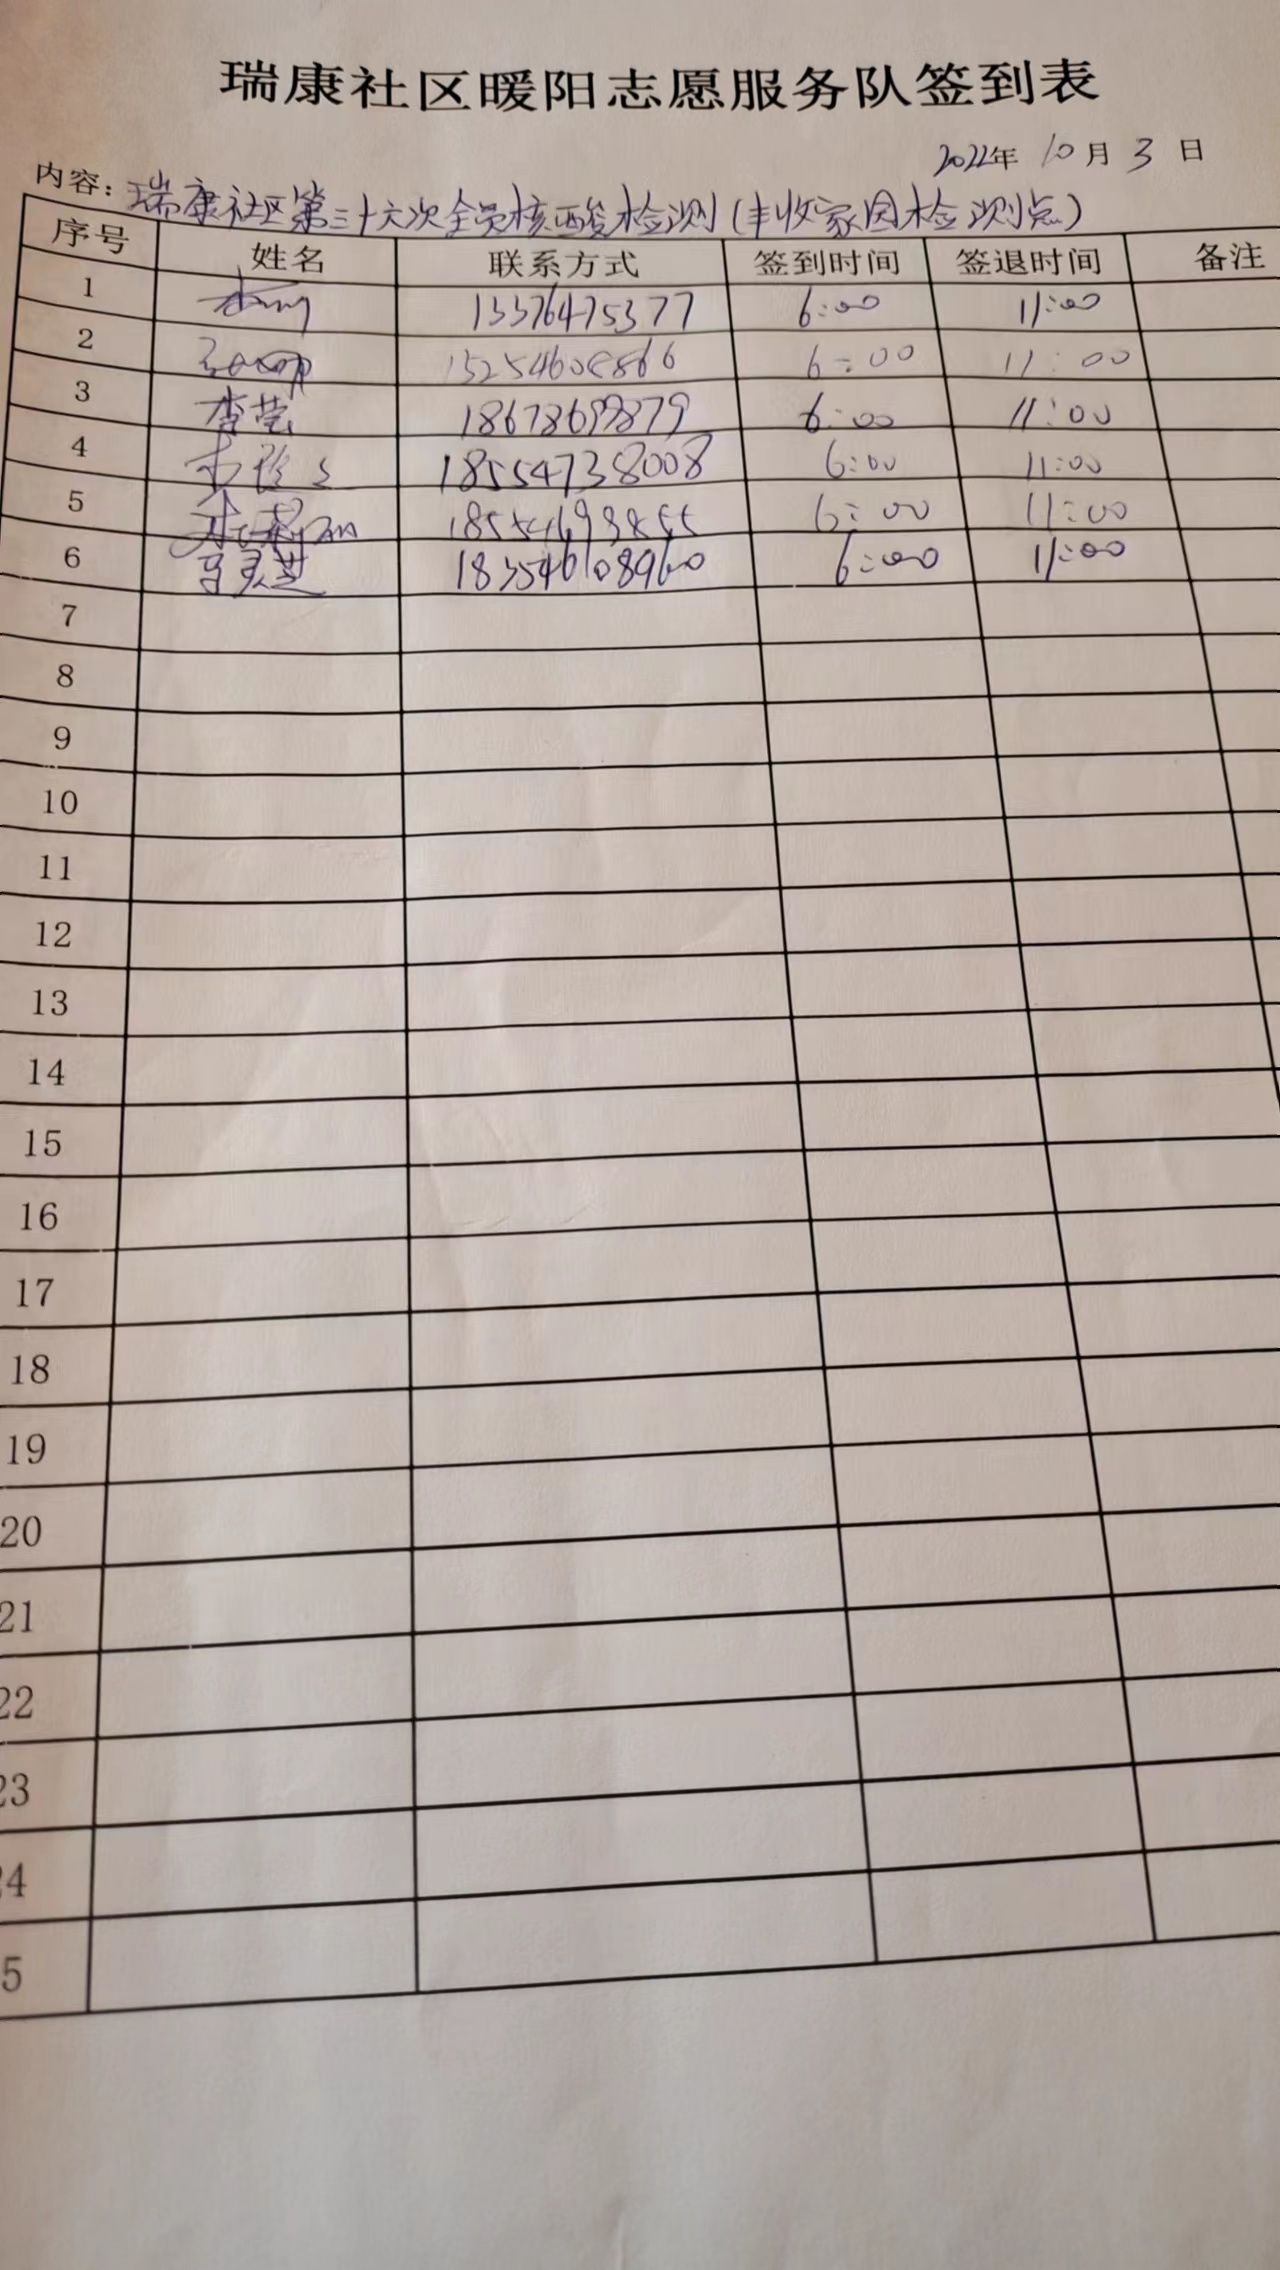 瑞康社区暖阳志愿服务队签到表
2022年 10月 3日
内容：瑞康社区第三十六次全员核酸检测（丰收家园检测点）
序号 姓名 联系方式 签到时间 签退时间 备注
1 13376475377 6:00 11:00
2 6:00 11:00
3 李莹 18678699879 6:00 11:00
4 18554738008 6:00 11:00
5 18554693855 6:00 11:00
6 马灵芝 18354608960 6:00 11:00
7
8
9
10
11
12
13
14
15
16
17
18
19
20
21
22
23
24
5